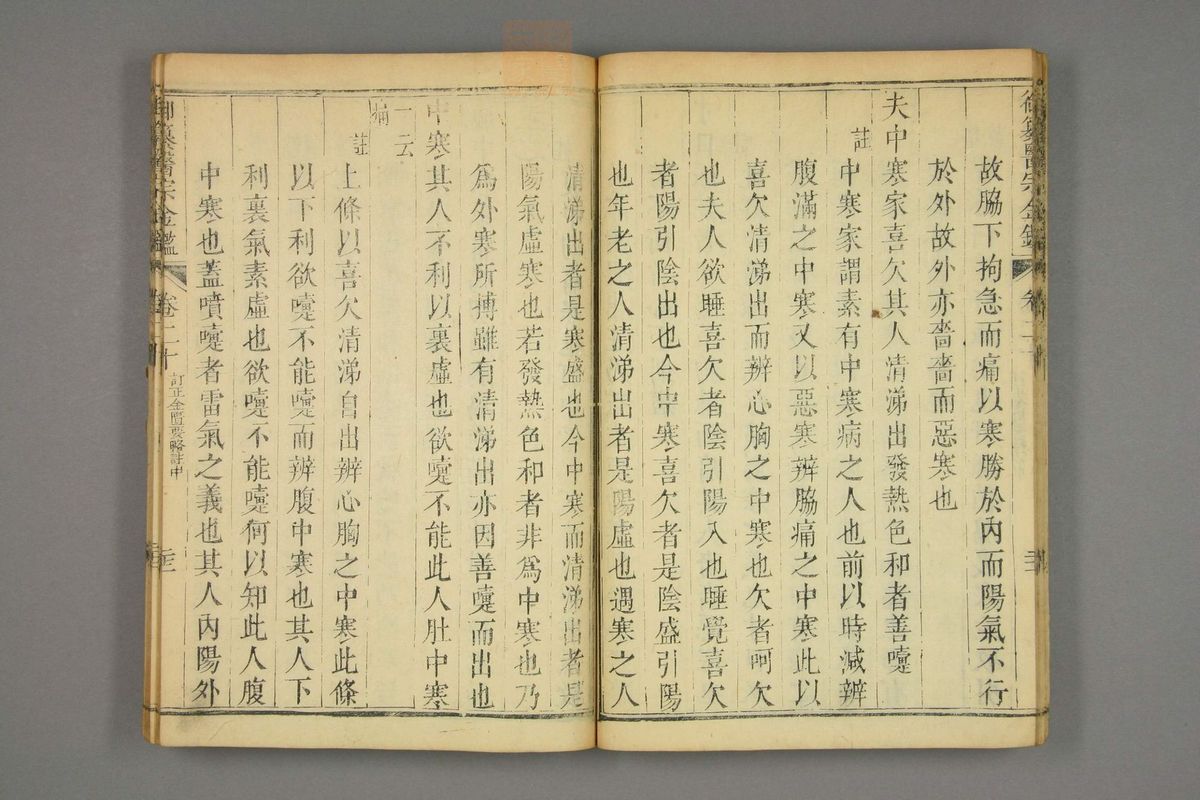 故脇下拘急而痛以寒勝於內而陽氣不行
於外故外亦嗇嗇而惡寒也
夫中寒家喜欠其人清涕出發熱色和者善嚏
註中寒家謂素有中寒病之人也前以時減辨
腹滿之中寒又以惡寒辨脇痛之中寒此以
喜欠清涕出而辨心胸之中寒也欠者呵欠
也夫人欲睡喜欠者陰引陽入也睡覺喜欠
者陽引陰出也今中寒喜欠者是陰盛引陽
也年老之人清涕出者是陽虛也遇寒之人
清涕出者是寒盛也今中寒而清涕出者是
陽氣虛寒也若發熱色和者非爲中寒也乃
爲外寒所搏雖有清涕出亦因善嚏而出也
中寒其人下利以裏虛也欲嚏不能此人肚中寒
一云
痛
註上條以喜欠清涕自出辨心胸之中寒此條
以下利欲嚏不能嚏而辨腹中寒也其人下
利裏氣素虛也欲嚏不能嚏何以知此人腹
中寒也蓋噴嚏者雷氣之義也其人內陽外
御纂醫宗金鑑
卷二十
訂正金匱要略註中